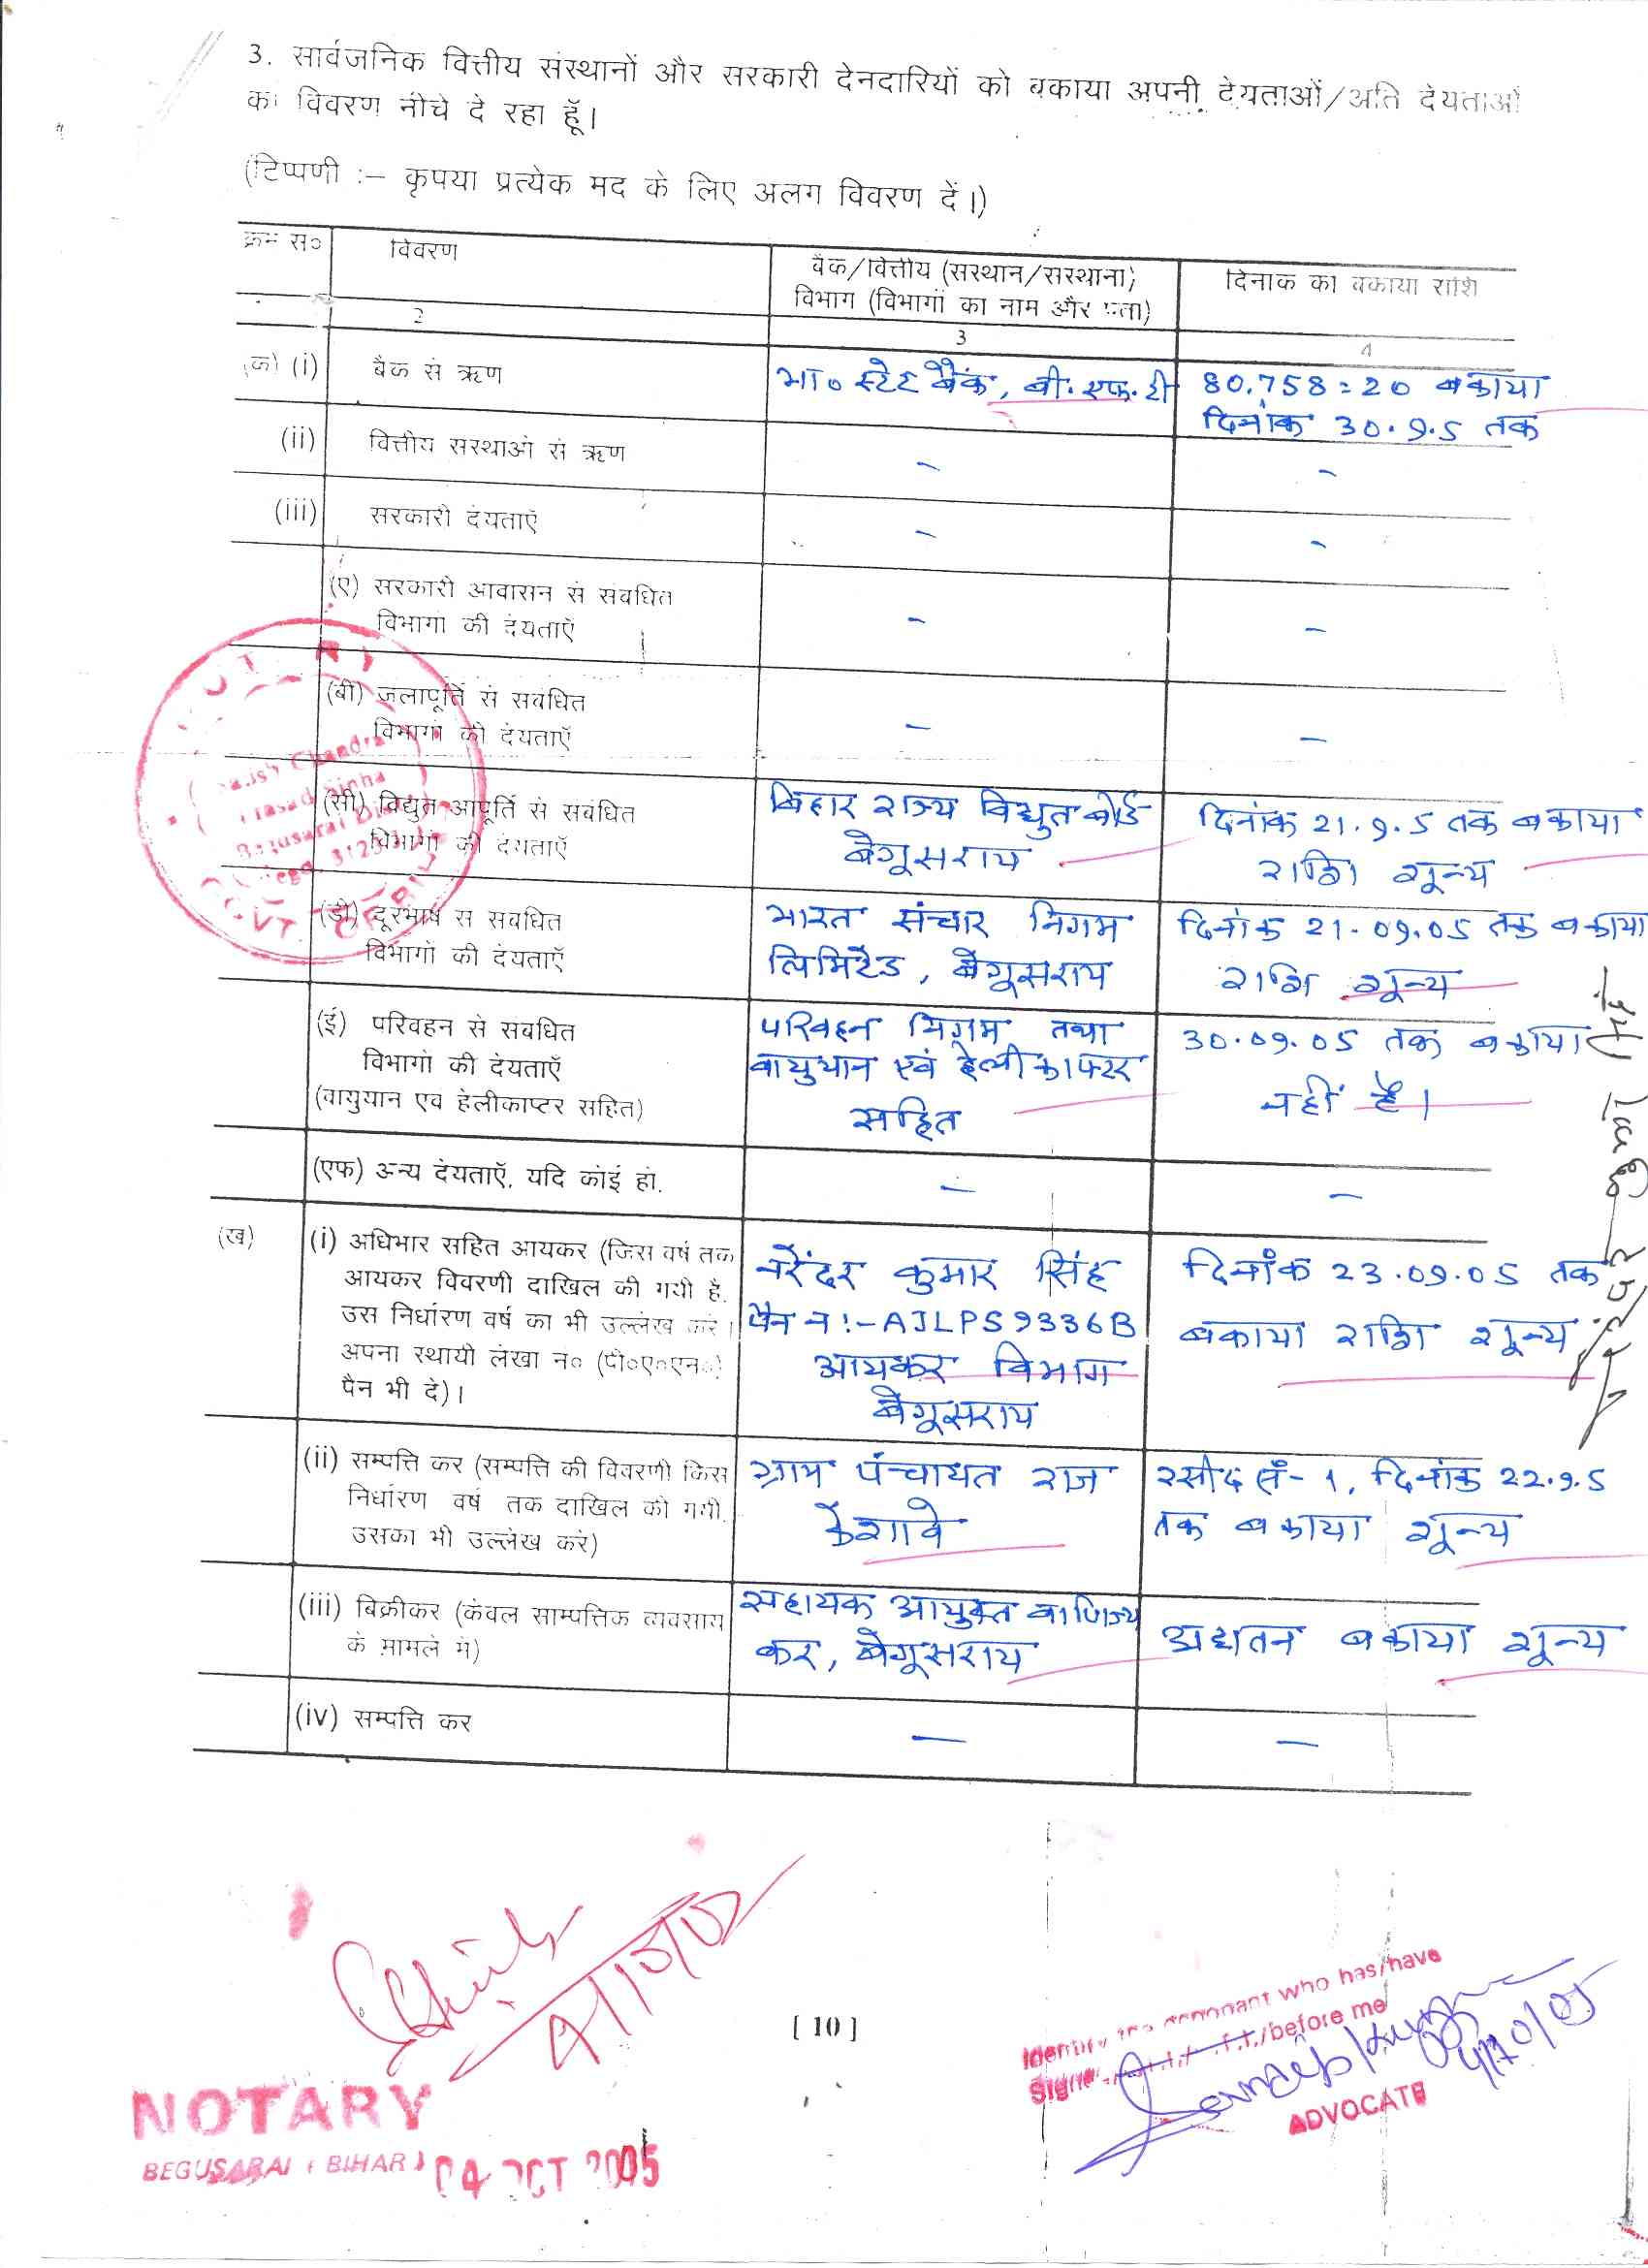 3. सार्वजनिक वित्तीय संस्थानों और सरकारी देनदारियों को बकाया अपनी देयताओं/अति देयताओं
का विवरण नीचे दे रहा हूँ।
(टिप्पणी :– कृपया प्रत्येक मद के लिए अलग विवरण दें।)
क्रम सं०
विवरण
बैंक/वित्तीय (संस्थान/संस्थानों)
विभाग (विभागों का नाम और पता)
दिनांक को बकाया राशि
2
3
4
(क) (i)
बैंक से ऋण
भा० स्टेट बैंक, बी.एफ.टी
80,758=20 बकाया
दिनांक 30.9.5 तक
(ii)
वित्तीय संस्थाओं से ऋण
–
–
(iii)
सरकारी देयताएँ
–
–
(ए) सरकारी आवासन से संबंधित
विभागों की देयताएँ
–
–
(बी) जलापूर्ति से संबंधित
विभागों की देयताएँ
–
–
(सी) विद्युत आपूर्ति से संबंधित
विभागों की देयताएँ
बिहार राज्य विद्युत बोर्ड
बेगूसराय
दिनांक 21.9.5 तक बकाया
राशि शून्य
(डी) दूरभाष से संबंधित
विभागों की देयताएँ
भारत संचार निगम
लिमिटेड, बेगूसराय
दिनांक 21-09.05 तक बकाया
राशि शून्य
(ई) परिवहन से संबंधित
विभागों की देयताएँ
(वायुयान एवं हेलीकाप्टर सहित)
परिवहन निगम तथा
वायुयान एवं हेलीकाप्टर
सहित
30.09.05 तक बकाया
नहीं है।
(एफ) अन्य देयताएँ, यदि कोई हो.
–
–
(ख)
(i) अधिभार सहित आयकर (जिस वर्ष तक
आयकर विवरणी दाखिल की गयी है,
उस निर्धारण वर्ष का भी उल्लेख करें।
अपना स्थायी लेखा नं० (पी०ए०एन०)
पैन भी दे)।
नरेंदर कुमार सिंह
पैन न:-AJLPS9336B
आयकर विभाग
बेगूसराय
दिनाँक 23.09.05 तक
बकाया राशि शून्य
(ii) सम्पत्ति कर (सम्पत्ति की विवरणी किस
निर्धारण वर्ष तक दाखिल की गयी,
उसका भी उल्लेख करें)
ग्राम पंचायत राज
केशावे
रसीद सं- 1, दिनांक 22.9.5
तक बकाया शून्य
(iii) बिक्रीकर (केवल साम्पत्तिक व्यवसाय
के मामले में)
सहायक आयुक्त वाणिज्य
कर, बेगूसराय
अद्यतन बकाया शून्य
(iv) सम्पत्ति कर
–
–
[ 10 ]
Identify the deponant who has/have
before me
4/10/05
ADVOCATE
NOTARY
BEGUSARAI (BIHAR)
04 OCT 2005